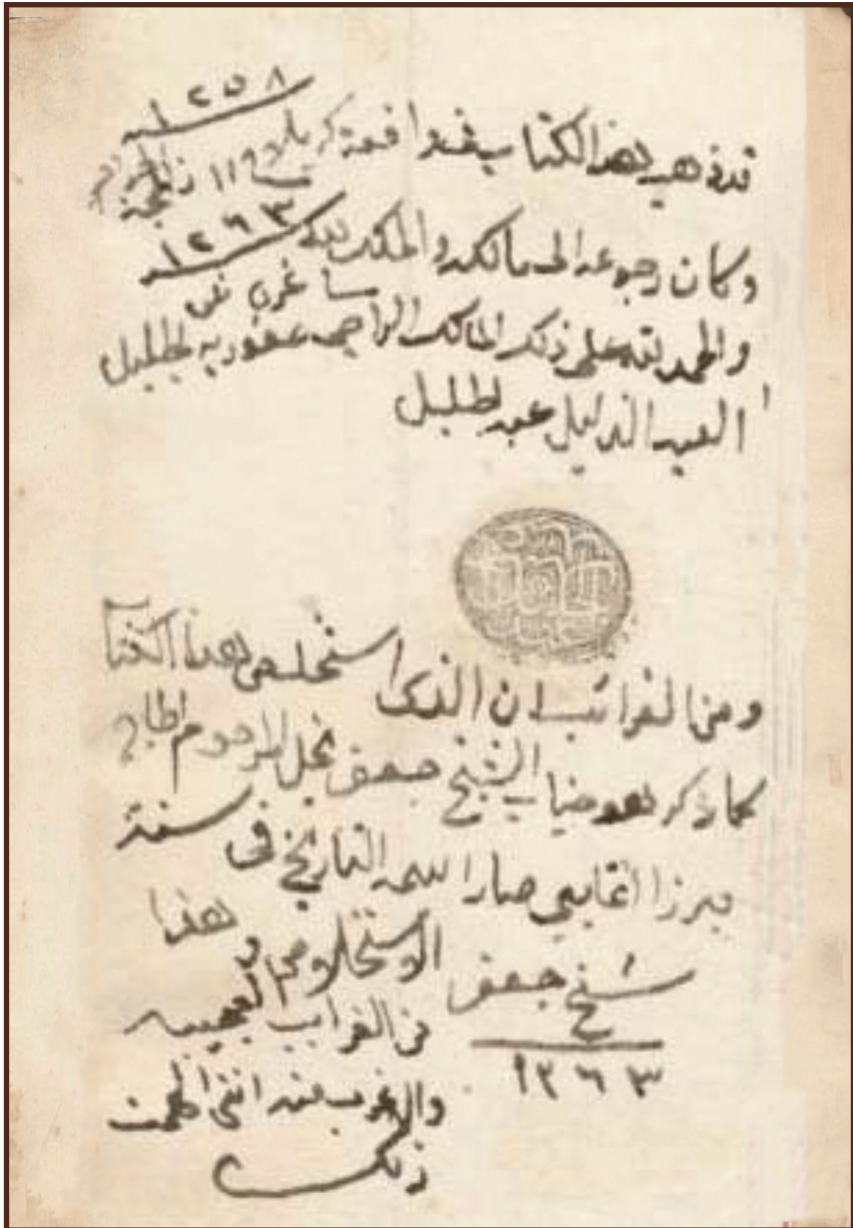 ١٢٥٨
قد ذهب هذا الكتاب في واقعة كربلا ١١ ذي الحجة
وكان رجوعه الى مالكه والملك لله ١٢٦٣
والحمد لله على ذلك المالك الراجي عفو ربه الجليل
العبد الذليل عبد الجليل
ومن الغرائب ان الذي استخلص هذا الكتاب
كما ذكر هو جناب الشيخ جعفر نجل المرحوم الحاج
ميرزا صار اسمه التاريخ في سنة
شيخ جعفر
١٢٦٣
الاستخلاص وهذا
من الغرايب العجيبه
والاغرب منه انني الهمت
ذلك